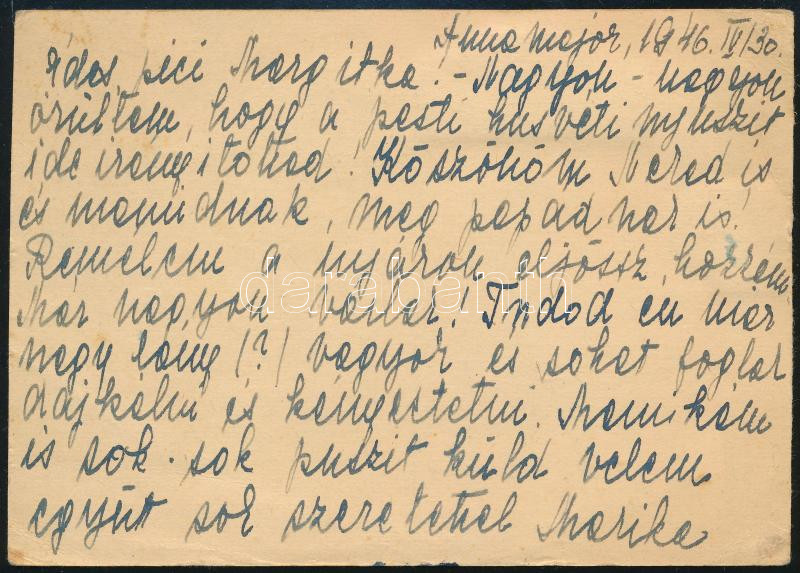 Annamajor, 1946. IV/30.
Édes pici Margitka! - Nagyon - nagyon
örültem, hogy a pesti husvéti nyuszit
ide iranyitottad! Köszönöm Neked is
és manudnak, meg papadnak is!
Remelem a nyáron eljössz, hozzám
Már nagyon várlak! Tudod en már
nagy lány (?) vagyok es sokat foglak
dajkálni és kényeztetni. Mamikám
is sok - sok puszit küld velem
együtt sok szeretettel Marika
darabanth